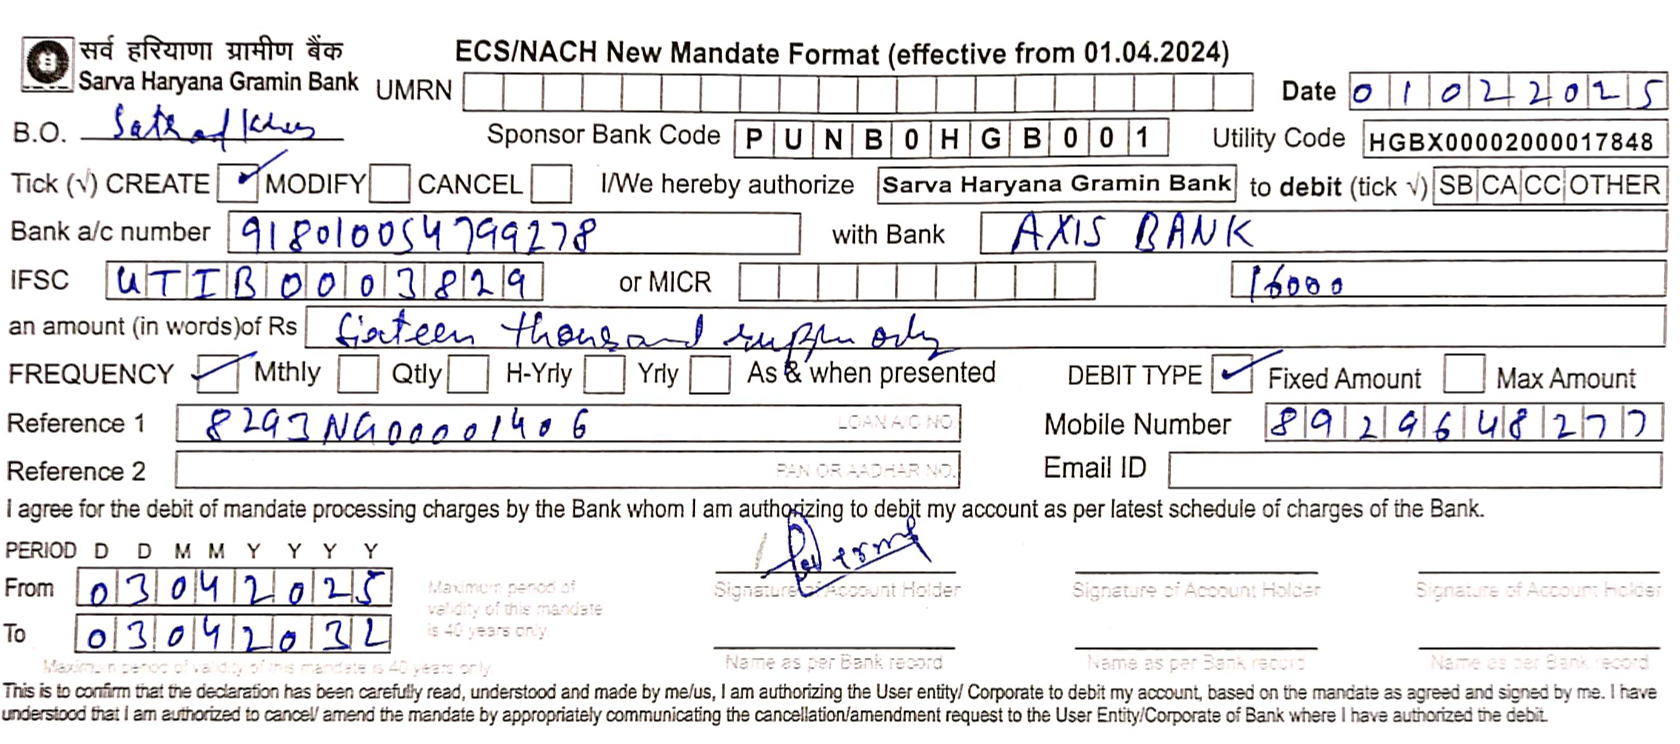 सर्व हरियाणा ग्रामीण बैंक
Sarva Haryana Gramin Bank
ECS/NACH New Mandate Format (effective from 01.04.2024)
UMRN Date 01022025
B.O. Sponsor Bank Code PUNB0HGB001 Utility Code HGBX00002000017848
Tick (√) CREATE ✓ MODIFY CANCEL I/We hereby authorize Sarva Haryana Gramin Bank to debit (tick √) SB CA CC OTHER
Bank a/c number 918010054799278 with Bank AXIS BANK
IFSC UTIB0003829 or MICR 16000
an amount (in words)of Rs Sixteen thousand only
FREQUENCY ✓ Mthly Qtly H-Yrly Yrly As & when presented DEBIT TYPE ✓ Fixed Amount Max Amount
Reference 1 8293NG00001406 LOAN A/C NO. Mobile Number 8929648277
Reference 2 PAN OR AADHAR NO. Email ID
I agree for the debit of mandate processing charges by the Bank whom I am authorizing to debit my account as per latest schedule of charges of the Bank.
PERIOD D D M M Y Y Y Y
From 03042025
To 03042032
Maximum period of
validity of this mandate
is 40 years only.
Maximum period of validity of this mandate is 40 years only.
Signature of Account Holder Signature of Account Holder Signature of Account Holder
Name as per Bank record Name as per Bank record Name as per Bank record
This is to confirm that the declaration has been carefully read, understood and made by me/us, I am authorizing the User entity/ Corporate to debit my account, based on the mandate as agreed and signed by me. I have
understood that I am authorized to cancel/ amend the mandate by appropriately communicating the cancellation/amendment request to the User Entity/Corporate of Bank where I have authorized the debit.